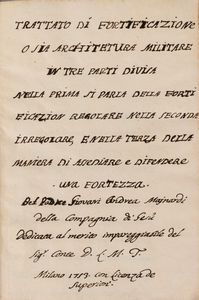 TRATTATO DI FORTIFICAZIONE
O SIA ARCHITETURA MILITARE
IN TRE PARTI DIVISA
NELLA PRIMA SI PARLA DELLA FORTI
FICAZION REGOLARE NELLA SECONDA
IRREGOLARE, E NELLA TERZA DELLA
MANIERA DI ASSEDIARE E DIFENDERE
UNA FORTEZZA.
Del Padre Giovan Andrea Mainardi
della Compagnia di Gesù
Dedicata al merito impareggiabile del
Sig. Conte D. L M. T
Milano 1713. con licenza de
Superiori.